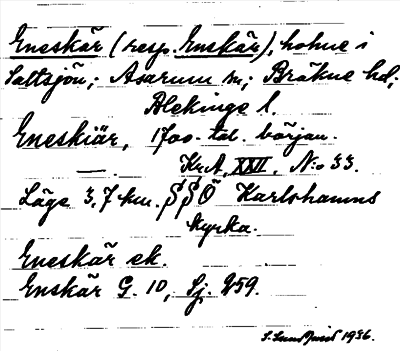 Eneskär (resp. Enskär), holme i
Saltsjön; Asarum sn; Bräkne hd;
Blekinge l.
Eneskiär, 1700-tal. början.
— . Kr.A. XXVI. N:o 33.
Läge 3,7 km. SSÖ Karlshamns
kyrka.
Eneskär ek.
Enskär G. 10, Sj. 259.
1936.